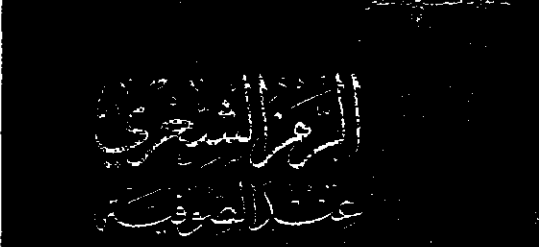 الرمز الشعري
عند الصوفية